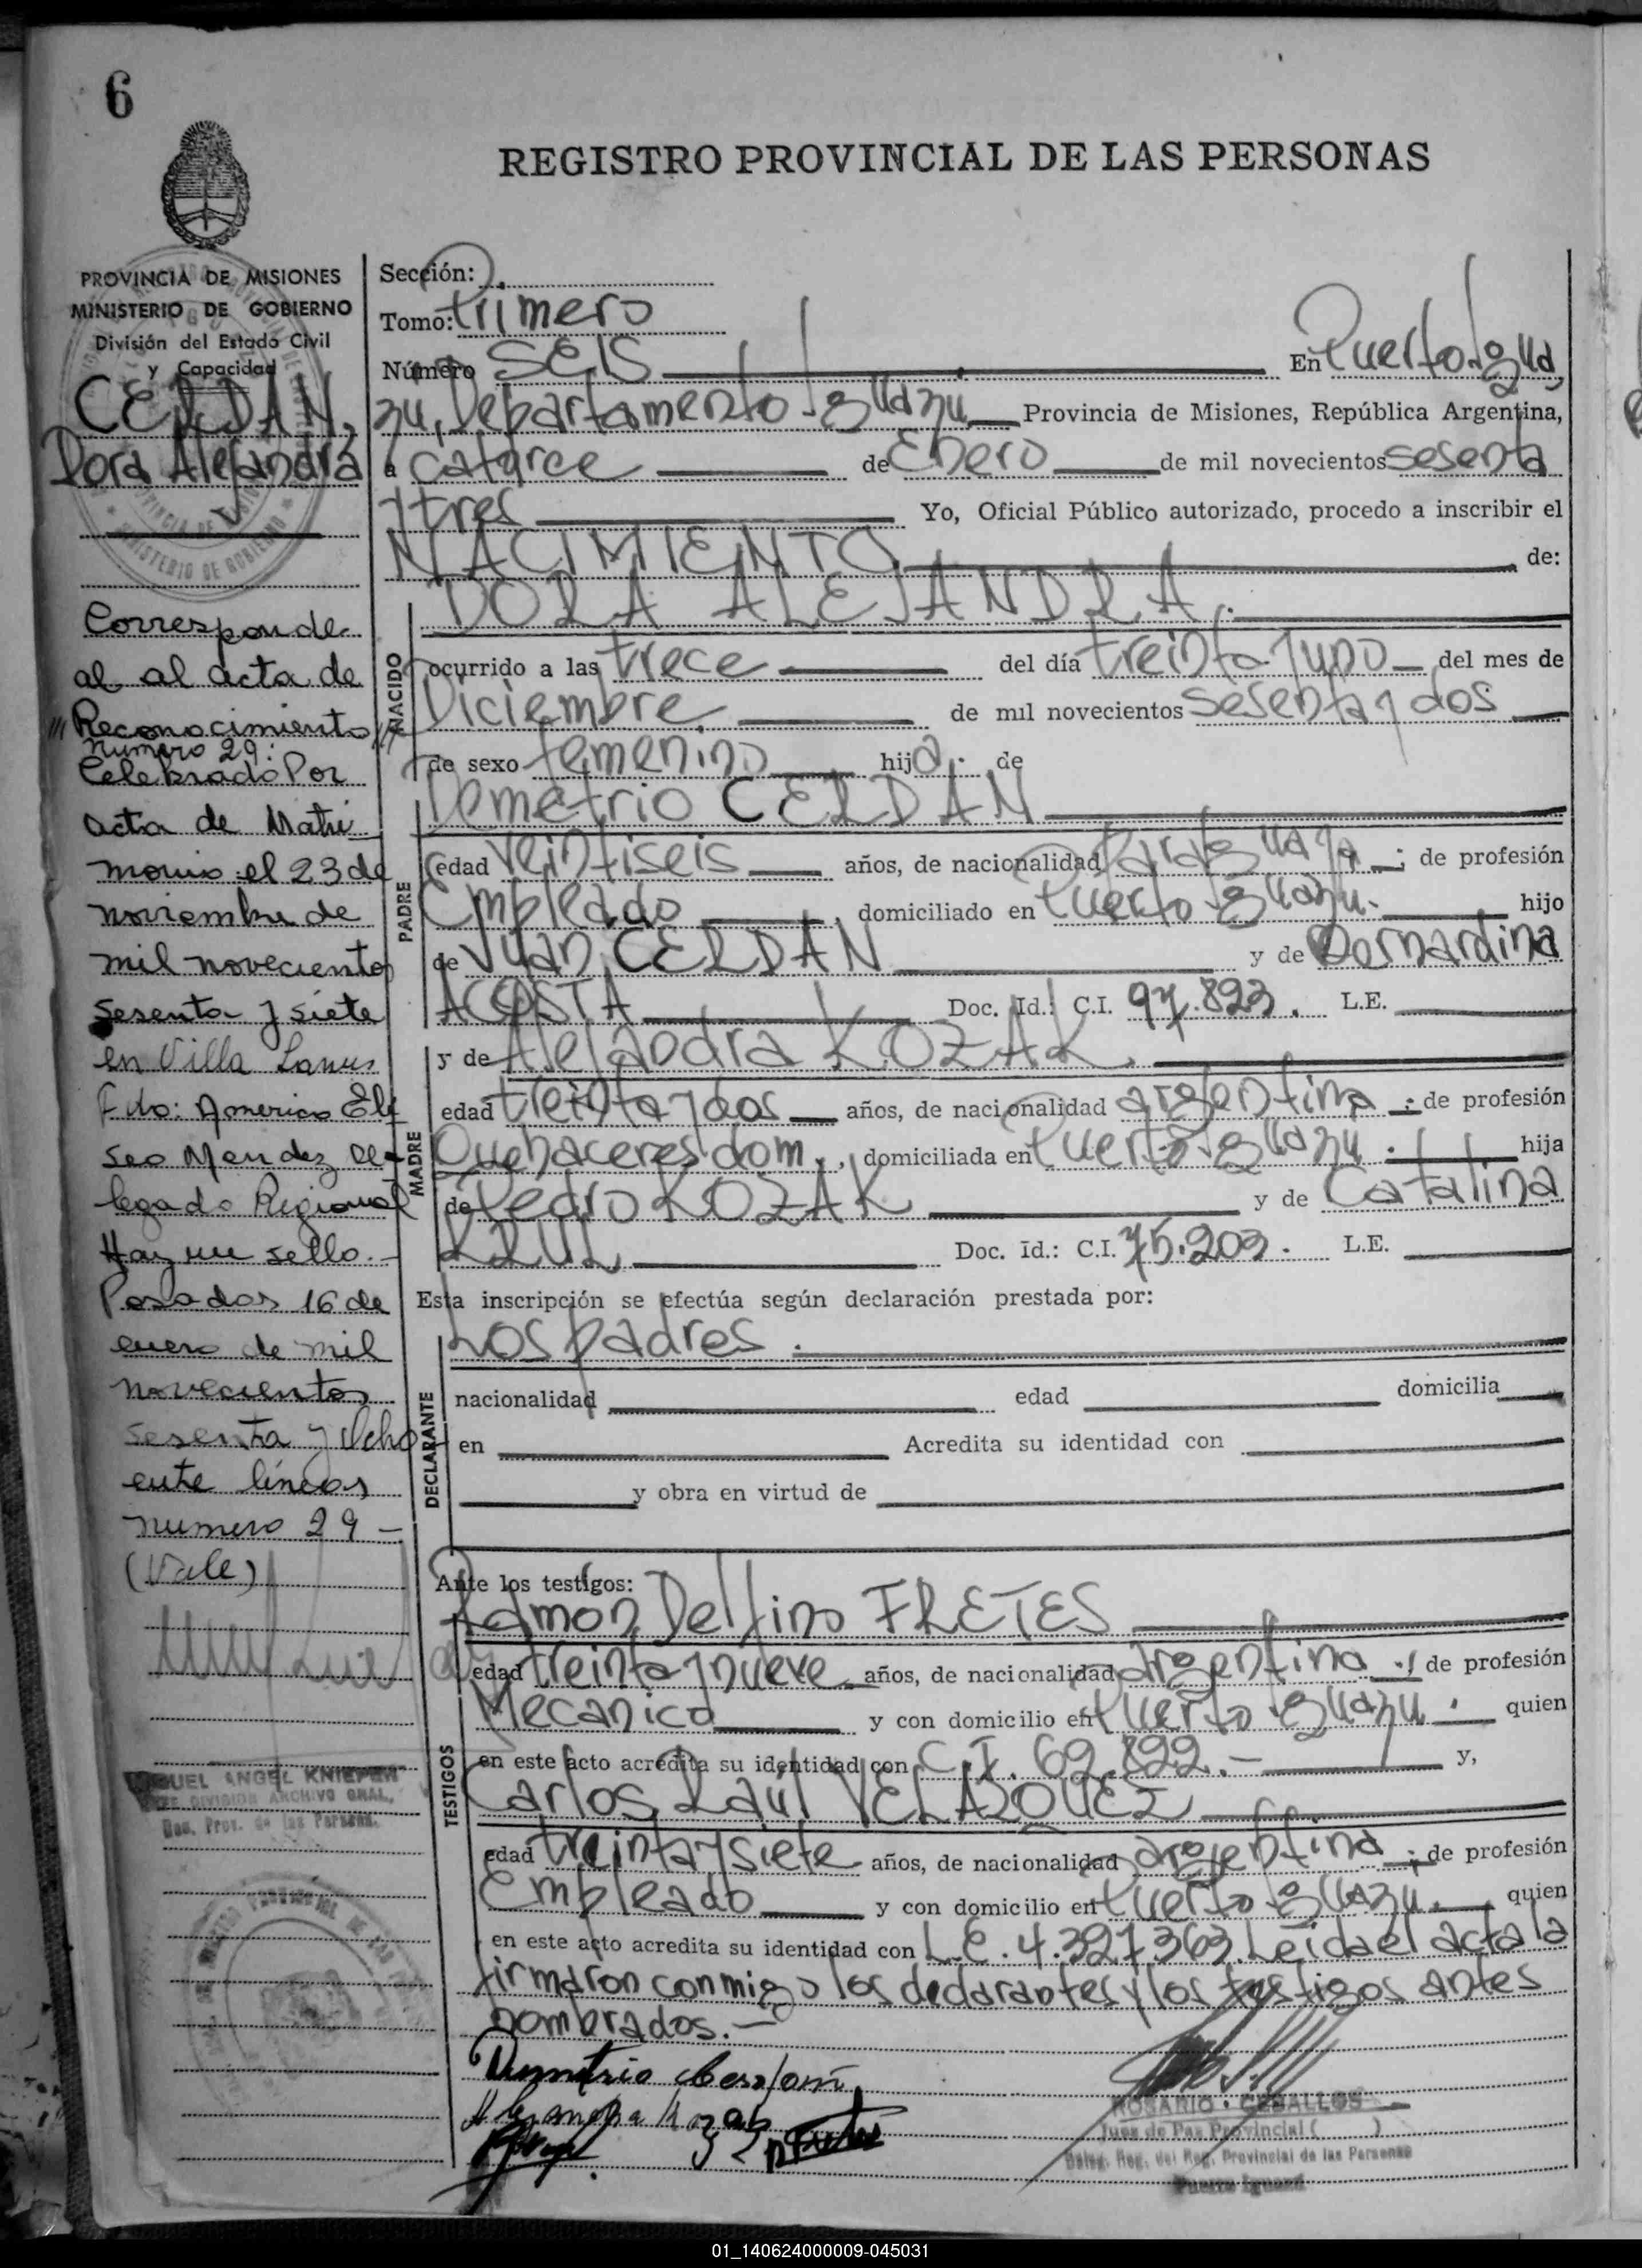 6
REGISTRO PROVINCIAL DE LAS PERSONAS
PROVINCIA DE MISIONES
MINISTERIO DE GOBIERNO
División del Estado Civil
y Capacidad
CERDAN,
Dora Alejandra
Corresponde
al al acta de
Reconocimiento
numero 29:
Celebrado Por
acta de Matri
monio el 23 de
noviembre de
mil novecientos
sesenta y siete
en Villa Lanus
Fdo: Americo Eli
seo Mendez De-
legado Regional
Hay un sello.-
Posadas 16 de
enero de mil
novecientos
sesenta y Ocho
ente lineas
numero 29 -
(Vale)
MIGUEL ANGEL KNIEPER
JEFE DIVISION ARCHIVO GRAL.
Reg. Prov. de las Person.
Sección:
Tomo: Primero
Número SEIS En Puerto Igua
zu, Departamento Iguazu Provincia de Misiones, República Argentina,
a catorce de Enero de mil novecientos sesenta
y tres Yo, Oficial Público autorizado, procedo a inscribir el
NACIMIENTO de:
DORA ALEJANDRA.
NACIDO
ocurrido a las trece del día treinta y uno del mes de
Diciembre de mil novecientos sesenta y dos
de sexo femenino hija. de
Demetrio CERDAN
PADRE
edad veintiseis años, de nacionalidad Paraguaya; de profesión
Empleado, domiciliado en Puerto Iguazu. hijo
de Juan CERDAN y de Bernardina
ACOSTA Doc. Id.: C.I. 97.823. L.E.
y de Alejandra KOZAK.
MADRE
edad treinta y dos años, de nacionalidad argentina; de profesión
Quehaceres dom., domiciliada en Puerto Iguazu. hija
de Pedro KOZAK y de Catalina
KRUL Doc. Id.: C.I. 75.203. L.E.
Esta inscripción se efectúa según declaración prestada por:
Los padres.
DECLARANTE
nacionalidad edad domicilia
en Acredita su identidad con
y obra en virtud de
Ante los testigos:
Ramon Delfino FRETES
TESTIGOS
edad treinta y nueve años, de nacionalidad argentina; de profesión
Mecanico y con domicilio en Puerto Iguazu. quien
en este acto acredita su identidad con C.I. 62.822.- y,
Carlos Raúl VELAZQUEZ
edad treinta y siete años, de nacionalidad argentina; de profesión
Empleado y con domicilio en Puerto Iguazu. quien
en este acto acredita su identidad con L.E. 4.327.363. Leida el acta la
firmaron conmigo los declarantes y los testigos antes
nombrados.-
ROSARIO CEBALLOS
Juez de Paz Provincial ( )
Deleg. Reg. del Reg. Provincial de las Personas
Puerto Iguazú
01_140624000009-045031